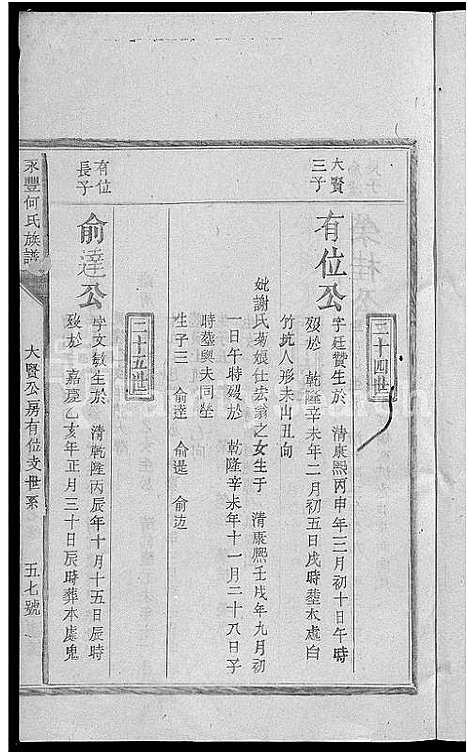 三十四世
大賢
三子
有位公
字廷贊生於 清康熙丙申年三月初十日午時
歿於 乾隆辛未年二月初五日戌時塟本處白
竹坑人形未山丑向
妣謝氏菊娘仕去翁之女生于 清康熙壬戌年九月初
一日午時歿於 乾隆辛未年十一月二十八日子
時塟與夫同塋
生子三 俞達 俞暹 俞边
三十五世
有位
長子
俞達公
字文敏生於 清乾隆丙辰年十月十五日辰時
歿於 嘉慶乙亥年正月三十日辰時葬本處鬼
永豐何氏族譜
大賢公房有位支世系
五七號